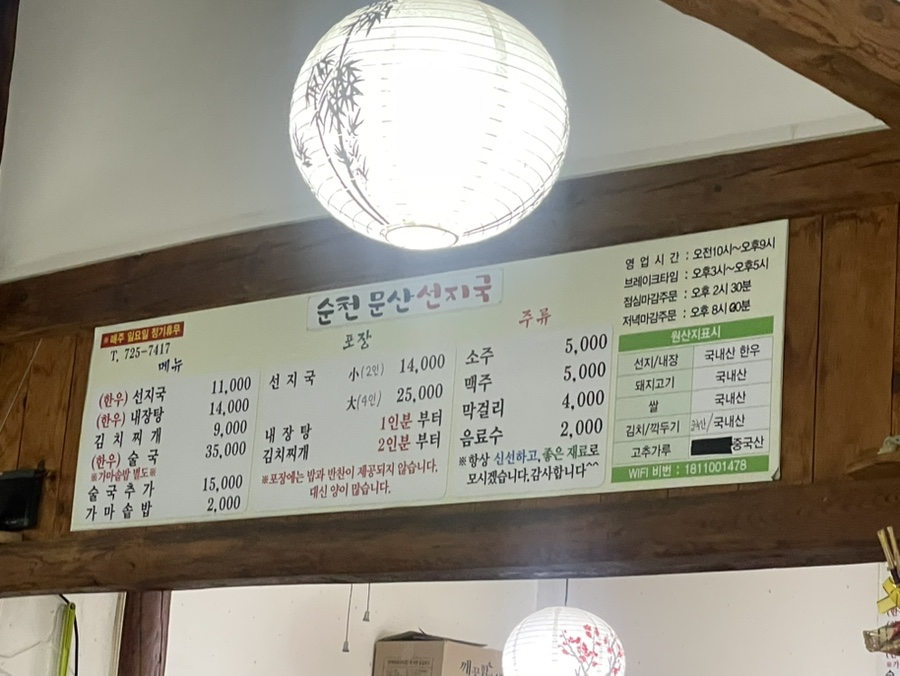 순천 문산 선지국
※매주 일요일 정기휴무
T. 725-7417
메뉴
(한우) 선지국 11,000
(한우) 내장탕 14,000
김치찌개 9,000
(한우) 술국 35,000
※가마솥밥 별도※
술국추가 15,000
가마솥밥 2,000
포장
선지국 小(2인) 14,000
大(4인) 25,000
내장탕 1인분 부터
김치찌개 2인분 부터
※포장에는 밥과 반찬이 제공되지 않습니다.
대신 양이 많습니다.
주류
소주 5,000
맥주 5,000
막걸리 4,000
음료수 2,000
※항상 신선하고, 좋은 재료로
모시겠습니다.감사합니다^^
영업시간 : 오전10시~오후9시
브레이크타임 : 오후3시~오후5시
점심마감주문 : 오후 2시 30분
저녁마감주문 : 오후 8시 00분
원산지표시
선지/내장 국내산 한우
돼지고기 국내산
쌀 국내산
김치/깍두기 /국내산
고추가루 중국산
WIFI 비번 : 1811001478